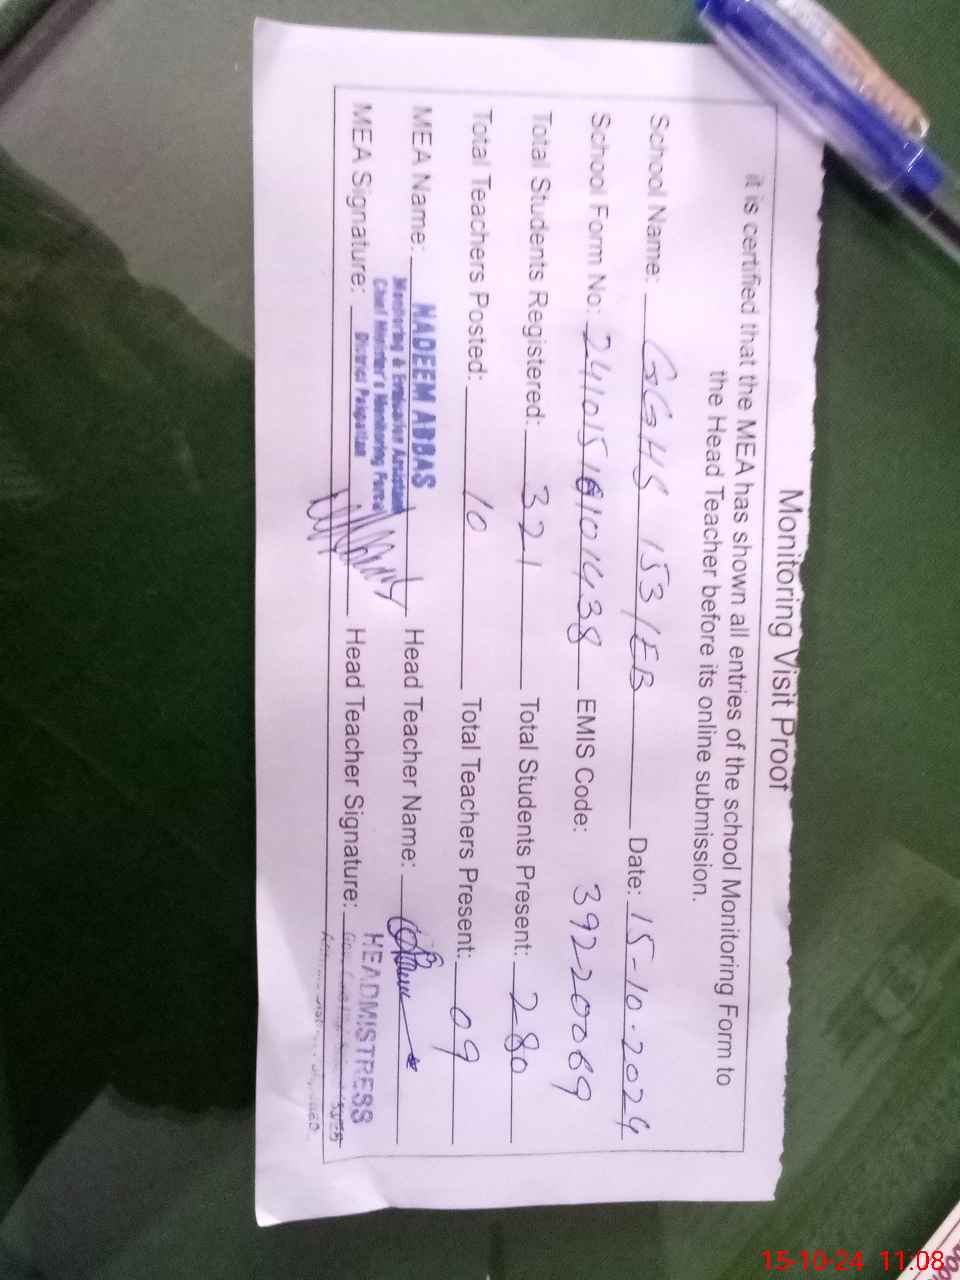 Monitoring Visit Proof
it is certified that the MEA has shown all entries of the school Monitoring Form to
the Head Teacher before its online submission.
School Name: GGHS 153/EB Date: 15-10-2024
School Form No: 24101516101438 EMIS Code: 39220069
Total Students Registered: 321 Total Students Present: 280
Total Teachers Posted: 10 Total Teachers Present: 09
MEA Name: NADEEM ABBAS Head Teacher Name:
Monitoring & Evaluation Assistant
Chief Minister's Monitoring Force
District Pakpattan
MEA Signature: Head Teacher Signature:
HEADMISTRESS
15-10-24 11:08